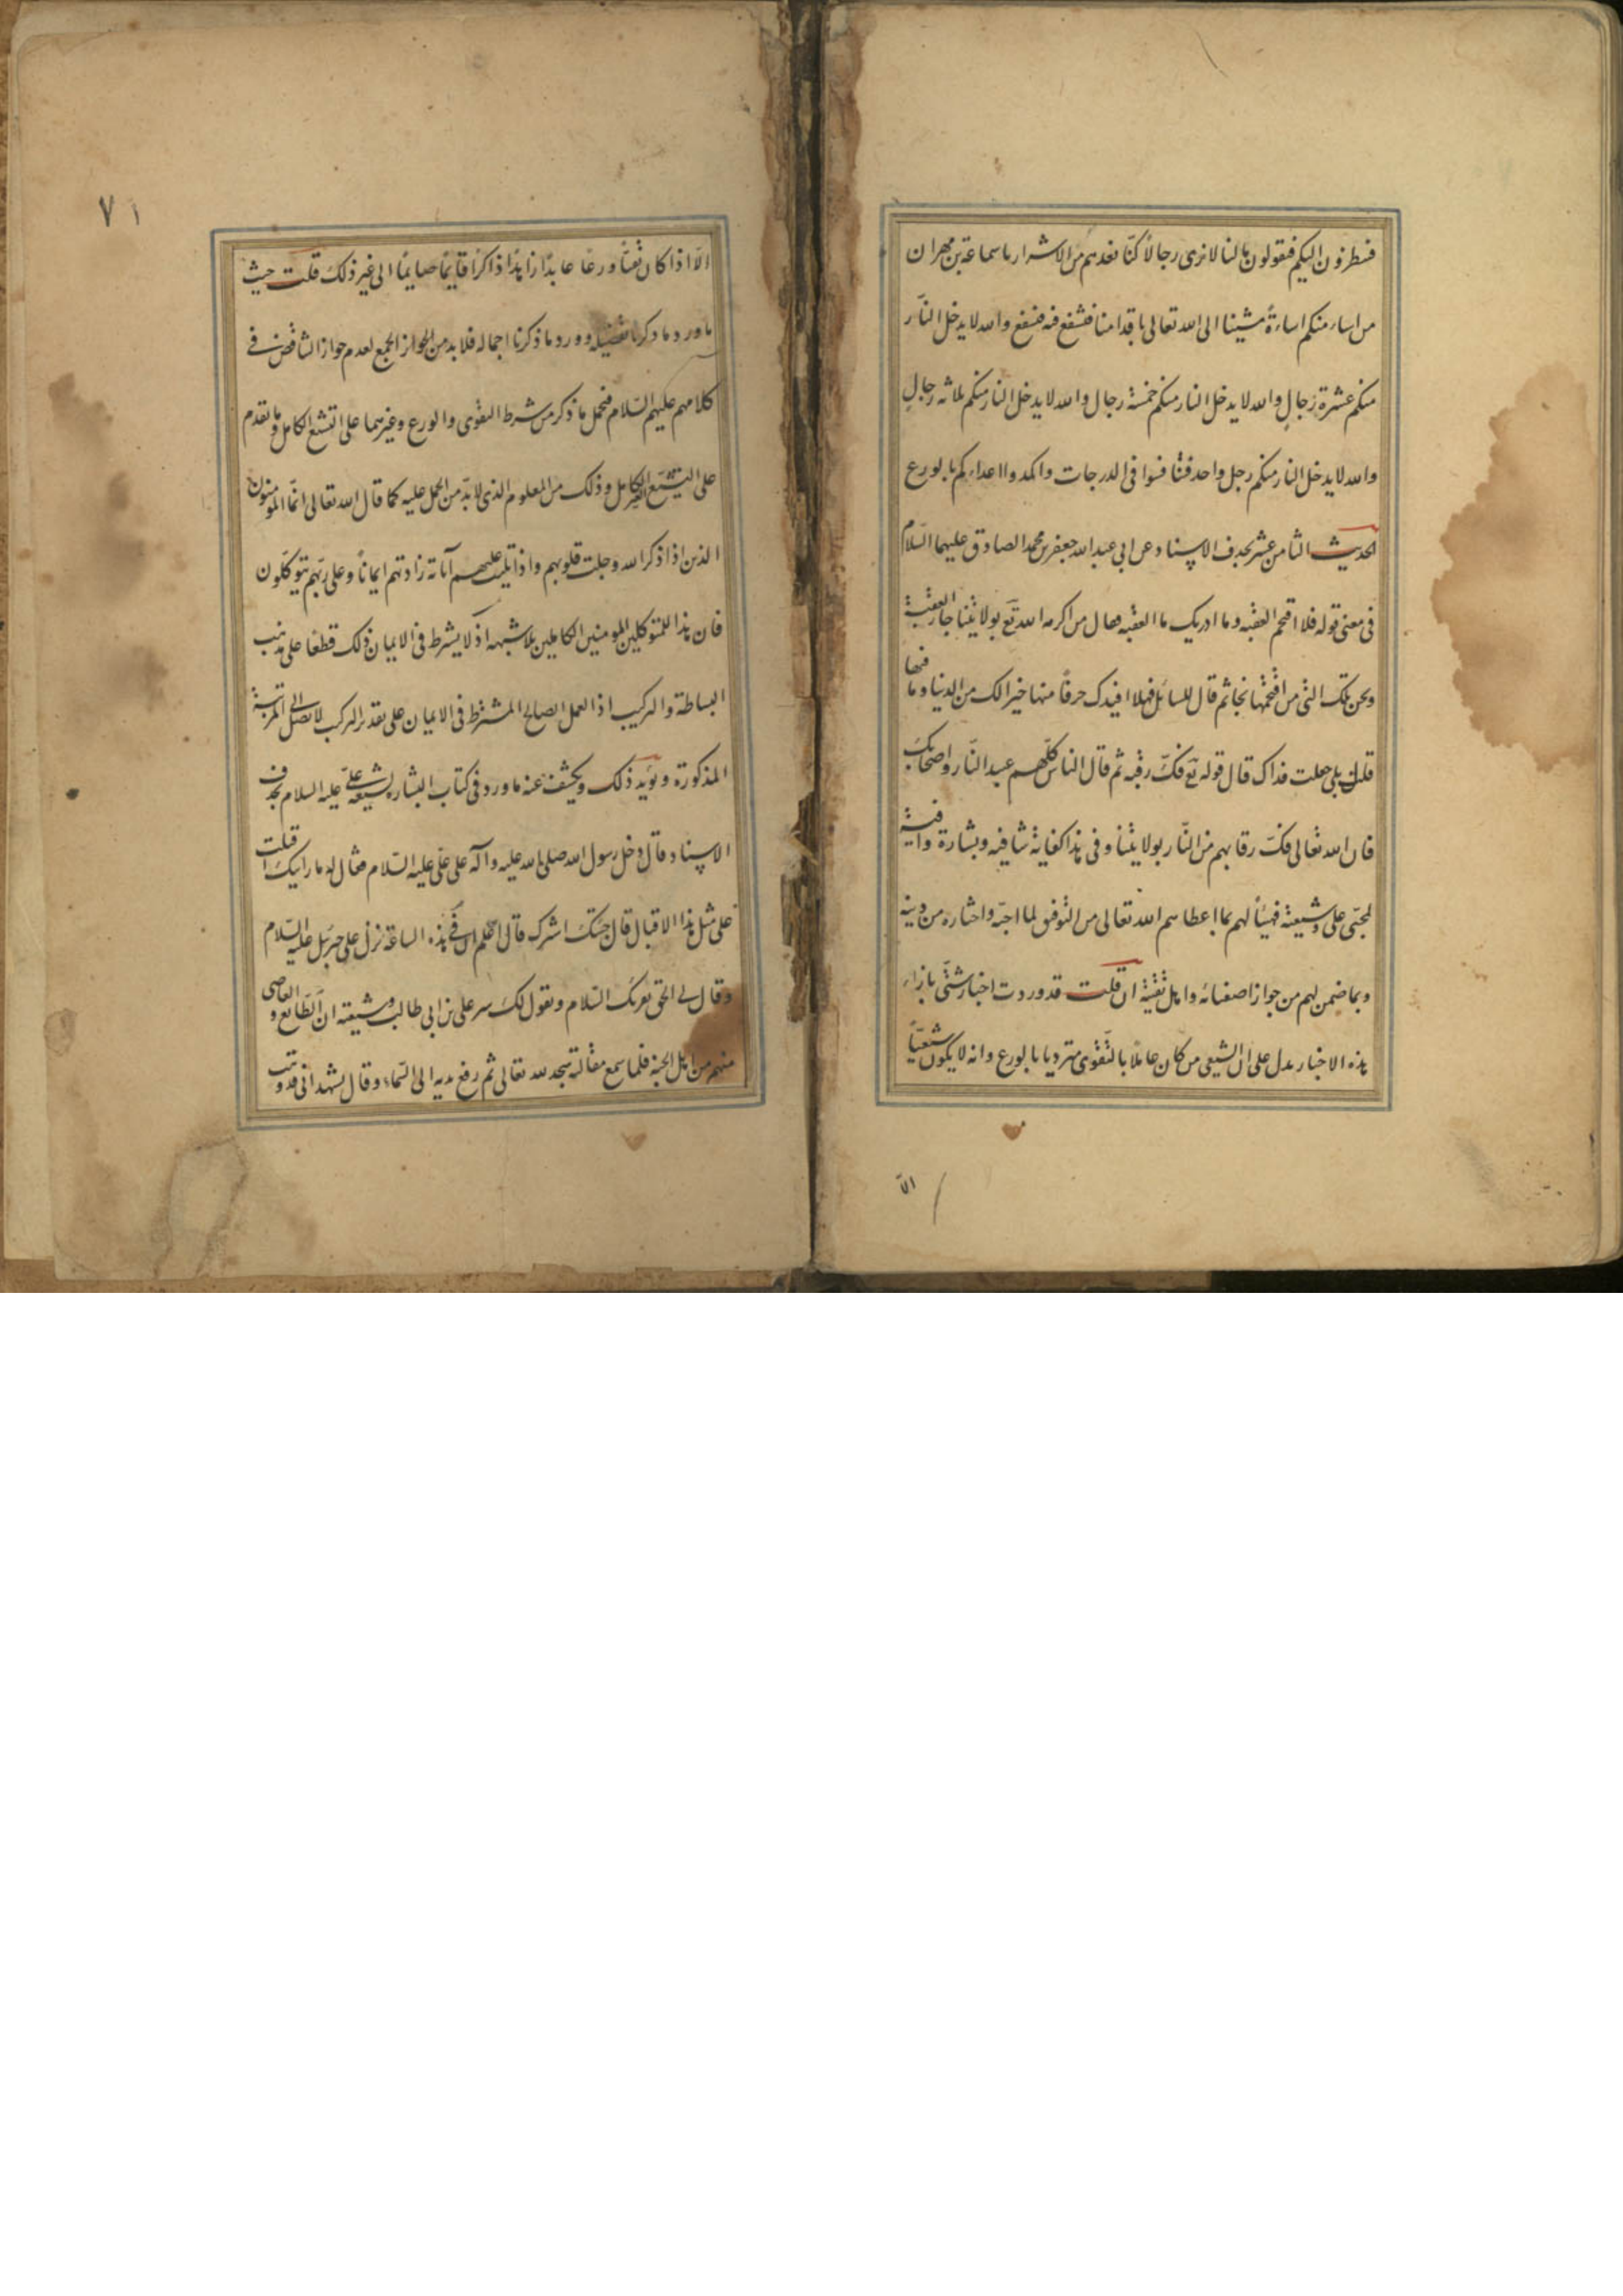 فينظرون اليكم فيقولون مالنا لا نرى رجالاً كنّا نعدهم من الاشرار يا سماعة بن مهران
من اساء منكم اساءةً مشينا الى الله تعالى باقدامنا فنشفع فيه فنشفع والله لا يدخل النّار
منكم عشرة رجالٍ والله لا يدخل النار منكم خمسة رجال والله لا يدخل النار منكم ثلاثه رجالٍ
والله لا يدخل النار منكم رجل واحد فتنافسوا فى الدرجات واكمدوا اعداءكم بالورع
الحديث الثامن عشر بحذف الاسناد عن ابى عبد الله جعفر بن محمد الصادق عليهما السّلام
فى معنى قوله فلا اقتحم العقبه وما ادريك ما العقبه فقال من اكرمه الله تع بولايتنا جاز العقبة
ونحن تلك التى من اقتحمها نجا ثم قال للسائل فهلا افيدك حرفاً منها خيرا لك من الدنيا وما فيها
قلت بلى جعلت فداك قال قوله تع فكّ رقبه ثم قال الناس كلّهم عبيد النّار واصحابك
فان الله تعالى فكّ رقابهم من النّار بولايتنا وفى هذا كفاية شافيه وبشارة وافية
لمحبّى على وشيعته فهنيئاً لهم بما اعطاهم الله تعالى من التوفيق لما احبّه واختاره من دينه
وبما ضمن لهم من جواز اصفيائه واهل ثقته ان قلت قد وردت اخبار شتّى بازاء
هذه الاخبار يدل على ان الشيعى من كان عاملاً بالتّقوى مترديا بالورع وانه لا يكون شيعيّاً
الّا
٧١
الّا اذا كان تقيّاً ورعًا عابدًا زاهدًا ذاكرًا قايمًا صايمًا الى غير ذلك قلت حيث
ما ورد ما ذكرنا تفصيله وورد ما ذكرنا اجماله فلا بد من الجواز الجمع لعدم جواز التناقض فى
كلامهم عليهم السّلام فنحمل ما ذكر من شرط التقوى والورع وغيرهما على التشيّع الكامل وما تقدم
على التشيّع الغير الكامل وذلك من المعلوم الذى لا بدّ من الحمل عليه كما قال الله تعالى انّما المؤمنون
الذين اذا ذكر الله وجلت قلوبهم واذا تليت عليهم آياته زادتهم ايمانًا وعلى ربّهم يتوكّلون
فان هذا للمتوكلين المومنين الكاملين بلا شبهه اذ لا يشترط فى الايمان ذلك قطعًا على مذهب
البساطة والتركيب اذ العمل الصالح المشترط فى الايمان على تقدير التركيب لا يصل الى المرتبة
المذكورة ويؤيد ذلك ويكشف عنه ما ورد فى كتاب البشاره لشيعة علىّ عليه السلام بحذف
الاسناد قال دخل رسول الله صلى الله عليه وآله على علىّ عليه السّلام فقال له ما رايتك اقبلت
على مثل هذا الاقبال قال جئتك ابشرك قال اعلم ان فى هذه الساعة نزل على جبرئيل عليه السّلام
وقال لى الحق يقرئك السّلام ويقول لك بشر على بن ابى طالب وشيعته ان الطّايع والعاصى
منهم من اهل الجنة فلما سمع مقالته سجد لله تعالى ثم رفع يديه الى السّماء وقال يشهد انى قد وهبت